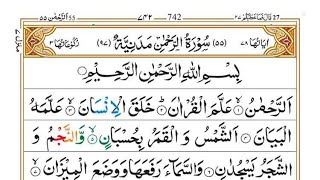 الرحمن ٥٥ ٧٤٢ 742 قال فما خطبكم ٢٧ 27
اٰيَاتُهَا ٧٨ (٥٥) سُوْرَةُ الرَّحْمٰنِ مَدَنِيَّةٌ (٩٧) رُكُوْعَاتُهَا ٣
بِسْمِ اللّٰهِ الرَّحْمٰنِ الرَّحِيْمِ
اَلرَّحْمٰنُ ۙ﴿۱﴾ عَلَّمَ الْقُرْاٰنَ ؕ﴿۲﴾ خَلَقَ الْاِنْسَانَ ۙ﴿۳﴾ عَلَّمَهُ
الْبَيَانَ ﴿۴﴾ اَلشَّمْسُ وَ الْقَمَرُ بِحُسْبَانٍ ۪﴿۵﴾ وَّالنَّجْمُ وَ
الشَّجَرُ يَسْجُدٰنِ ﴿۶﴾ وَالسَّمَآءَ رَفَعَهَا وَوَضَعَ الْمِيْزَانَ ۙ﴿۷﴾